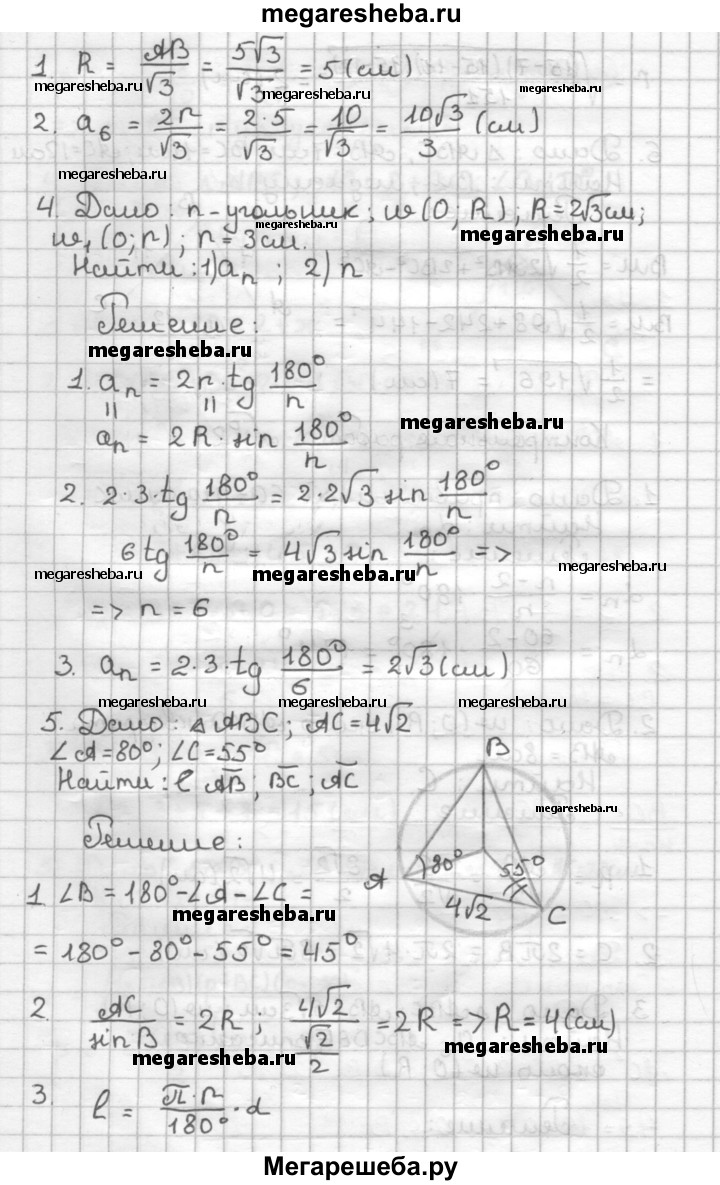 megaresheba.ru
1. R = AB/√3 = 5√3/√3 = 5 (см)
megaresheba.ru megaresheba.ru megaresheba.ru
2. a₆ = 2r/√3 = 2·5/√3 = 10/√3 = 10√3/3 (см)
megaresheba.ru
4. Дано: n-угольник; w(O; R); R=2√3 см;
megaresheba.ru
w₁(O; r); r = 3 см.
Найти: 1) aₙ ; 2) n
Решение:
megaresheba.ru
1. aₙ = 2r·tg 180°/n
|| ||
megaresheba.ru
aₙ = 2R·sin 180°/n
2. 2·3·tg 180°/n = 2·2√3 sin 180°/n
6 tg 180°/n = 4√3 sin 180°/n =>
megaresheba.ru megaresheba.ru megaresheba.ru
=> n = 6
3. aₙ = 2·3·tg 180°/6 = 2√3 (см)
megaresheba.ru megaresheba.ru megaresheba.ru
5. Дано: △ABC; AC=4√2
∠A=80°; ∠C=55°
Найти: l AB; BC; AC
B
megaresheba.ru
Решение:
80° 55°
A
4√2
C
1 ∠B = 180°-∠A-∠C =
megaresheba.ru
= 180° - 80° - 55° = 45°
2. AC/sin B = 2R; 4√2/(√2/2) = 2R => R = 4 (см)
megaresheba.ru megaresheba.ru
3. l = π·r/180° · α
Мегарешеба.ру